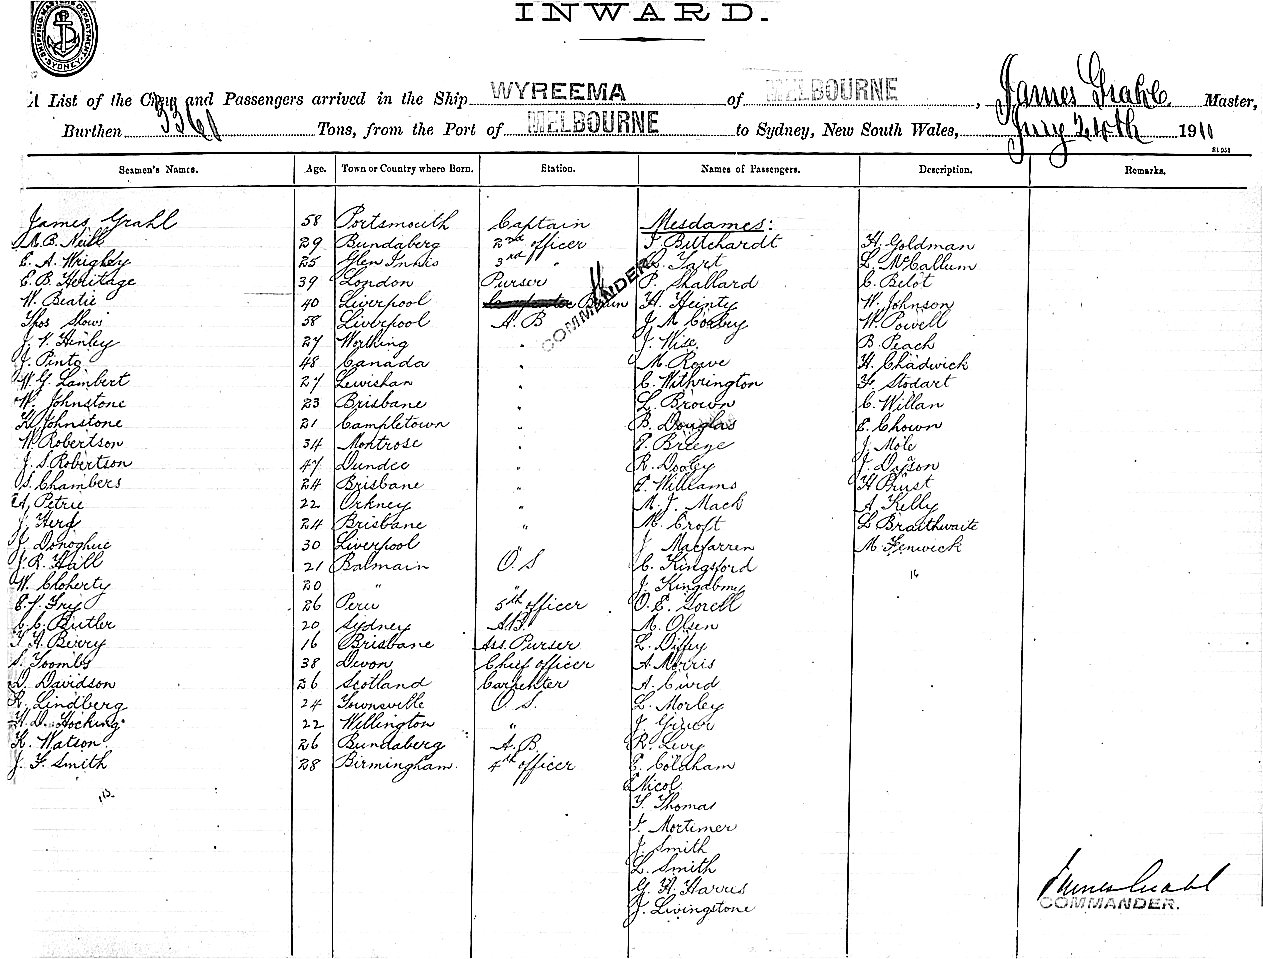 INWARD.
SHIPPING MASTER'S DEPARTMENT SYDNEY
A List of the Crew and Passengers arrived in the Ship WYREEMA of MELBOURNE, James Grahl Master,
Burthen 3361 Tons, from the Port of MELBOURNE to Sydney, New South Wales, July 24th 1911
Seamen's Names. Age. Town or Country where Born. Station. Names of Passengers. Description. Remarks.
James Grahl 58 Portsmouth Captain Mesdames:
M. B. Neill 29 Bundaberg 2nd officer Butchardt H. Goldman
E. A. Wrigley 25 Glen Innis 3rd " Tart L. McCallum
E. B. Heritage 39 London Purser P. Shallard C. Belot
W. Beatie 40 Liverpool H. Heinty W. Johnson
COMMANDER
Thos Shows 58 Liverpool A. B J. M. Corby W. Powell
J. V. Hinley 27 Worthing " J. Wise B. Peach
J. Pinto 48 Canada " M. Rowe H. Chadwick
W. G. Lambert 27 Lewishan " C. Withrington F. Stodart
W. Johnstone 23 Brisbane " L. Brown C. Willan
Johnstone 21 Campletown " B. Douglas E. Chown
W. Robertson 34 Montrose " E. Breene J. Mole
J. S. Robertson 47 Dundee " R. Dooley J. Dyson
S. Chambers 24 Brisbane " E. Williams H Prust
A. Petrie 22 Orkney " M. J. Mack A Kelly
J. Herd 24 Brisbane " M. Croft L Braithwaite
Donoghue 30 Liverpool J. Macfarren M. Fenwick
J. R. Hall 21 Balmain O S C. Kingsford 16
W. Cloherty 20 " " J.
E. J. Fry 26 Peru 5th officer O. E. Sorell
C. C. Butler 20 Sydney A.B. M. Olsen
T. H. Berry 16 Brisbane Ass. Purser L. Diffy
S. Toombs 38 Devon Chief officer A. Morris
D. Davidson 26 Scotland Carpenter A.
R. Lindberg 24 Townsville O S. L. Morley
H. D. Hocking 22 Wellington " J.
K. Watson 26 Bundaberg A. B. R. Levy
J. F. Smith 28 Birmingham. 4th officer E. Coldham
E Nicol
T. Thomas
F. Mortimer
J. Smith
L. Smith
G. H. Harris
J. Livingstone
James Grahl
COMMANDER.